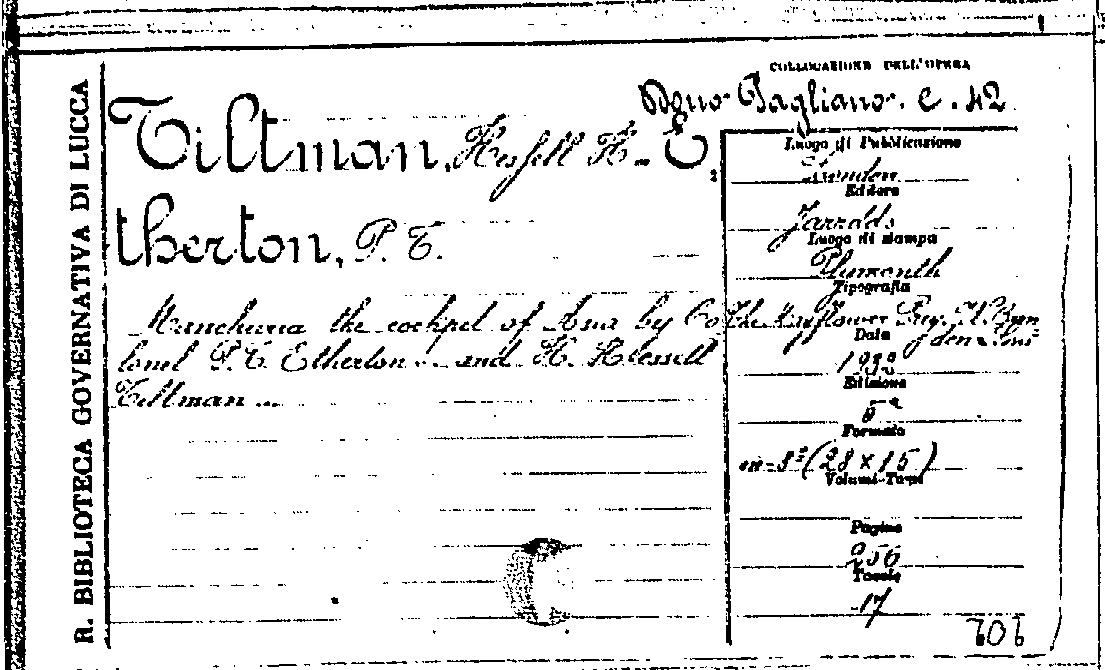 R. BIBLIOTECA GOVERNATIVA DI LUCCA
COLLOCAZIONE DELL'OPERA
Dono Pagliano. C. 42
Tiltman, Hessell H. - E
therton, P. T.
Manchuria the cockpit of Asia by Co
lonel P. T. Etherton ... and H. Hessell
Tiltman ...
Luogo di Pubblicazione
London
Editore
Jarrolds
Luogo di stampa
Plymouth
Tipografia
The Mayflower
Data
Edizione
5ª
Formato
in-8º (28 x 15)
Volumi-Tomi
Pagine
256
Tavole
17